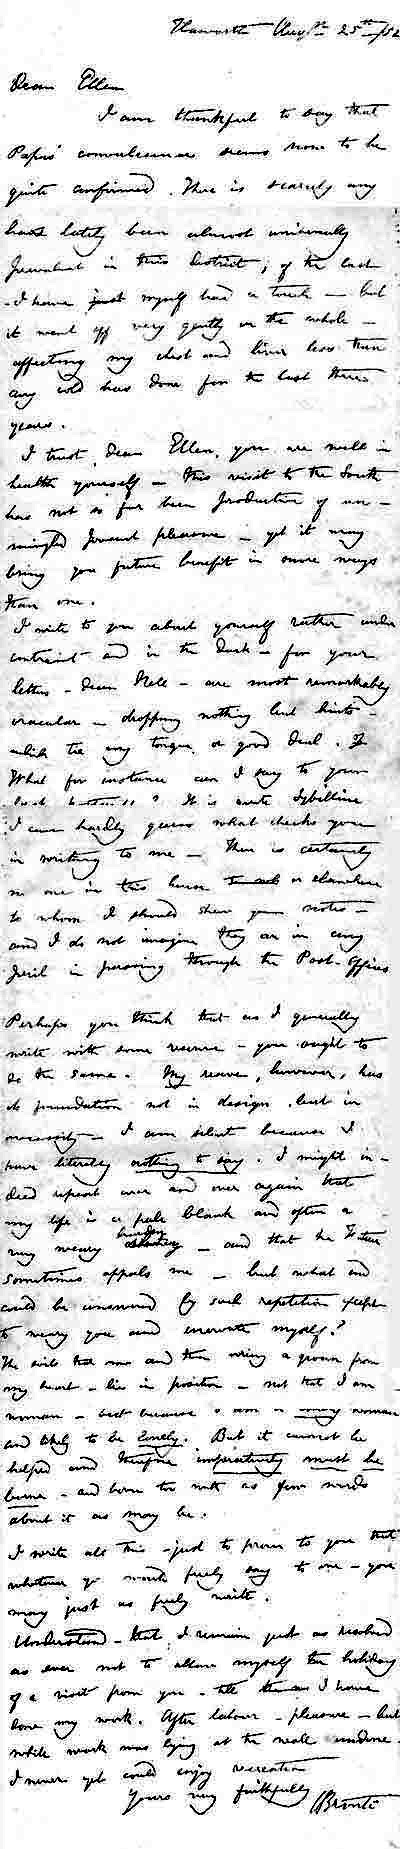 Haworth Augst 25th /52
Dear Ellen
I am thankful to say that
Papa's convalescence seems now to be
quite confirmed. There is scarcely any
lately been almost universally
prevalent in this district; of the last
- I have just myself had a touch - but
it went off very gently on the whole -
affecting my chest and liver less than
any cold has done for the last three
years.
I trust, dear Ellen, you are well in
health yourself - this visit to the South
has not so far been productive of un-
mingled present pleasure - yet it may
bring you future benefit in more ways
than one.
I write to you about yourself rather under
contraint and in the dark - for your
letters - dear Nell - are most remarkably
oracular - dropping nothing but hints -
which tie my tongue a good deal. If
What for instance can I say to your
last ? It is quite Sybilline
I can hardly guess what checks you
in writing to me - There is certainly
no one in this house or elsewhere
to whom I should shew your notes -
and I do not imagine they are in any
peril in passing through the Post-Offices
Perhaps you think that as I generally
write with some reserve - you ought to
do the same. My reserve, however, has
its foundation not in design, but in
necessity - I am silent because I
have literally nothing to say. I might in-
deed repeat over and over again that
my life is a pale blank and often a
very weary burden - and that the Future
sometimes appals me - but what end
could be answered by such repetition except
to weary you and enervate myself?
The evils that now and then wring a groan from
my heart - lie in position - not that I am a
woman - but because I am a lonely woman
and likely to be lonely. But it cannot be
helped and therefore imperatively must be
borne - and borne too with as few words
about it as may be.
I write all this - just to prove to you that
whatever you would freely say to me - you
may just as freely write.
Understand - that I remain just as resolved
as ever not to allow myself the holiday
of a visit from you - till I have
done my work. After labour - pleasure - but
while work was lying at the wall undone -
I never yet could enjoy recreation
Yours very faithfully CBrontë